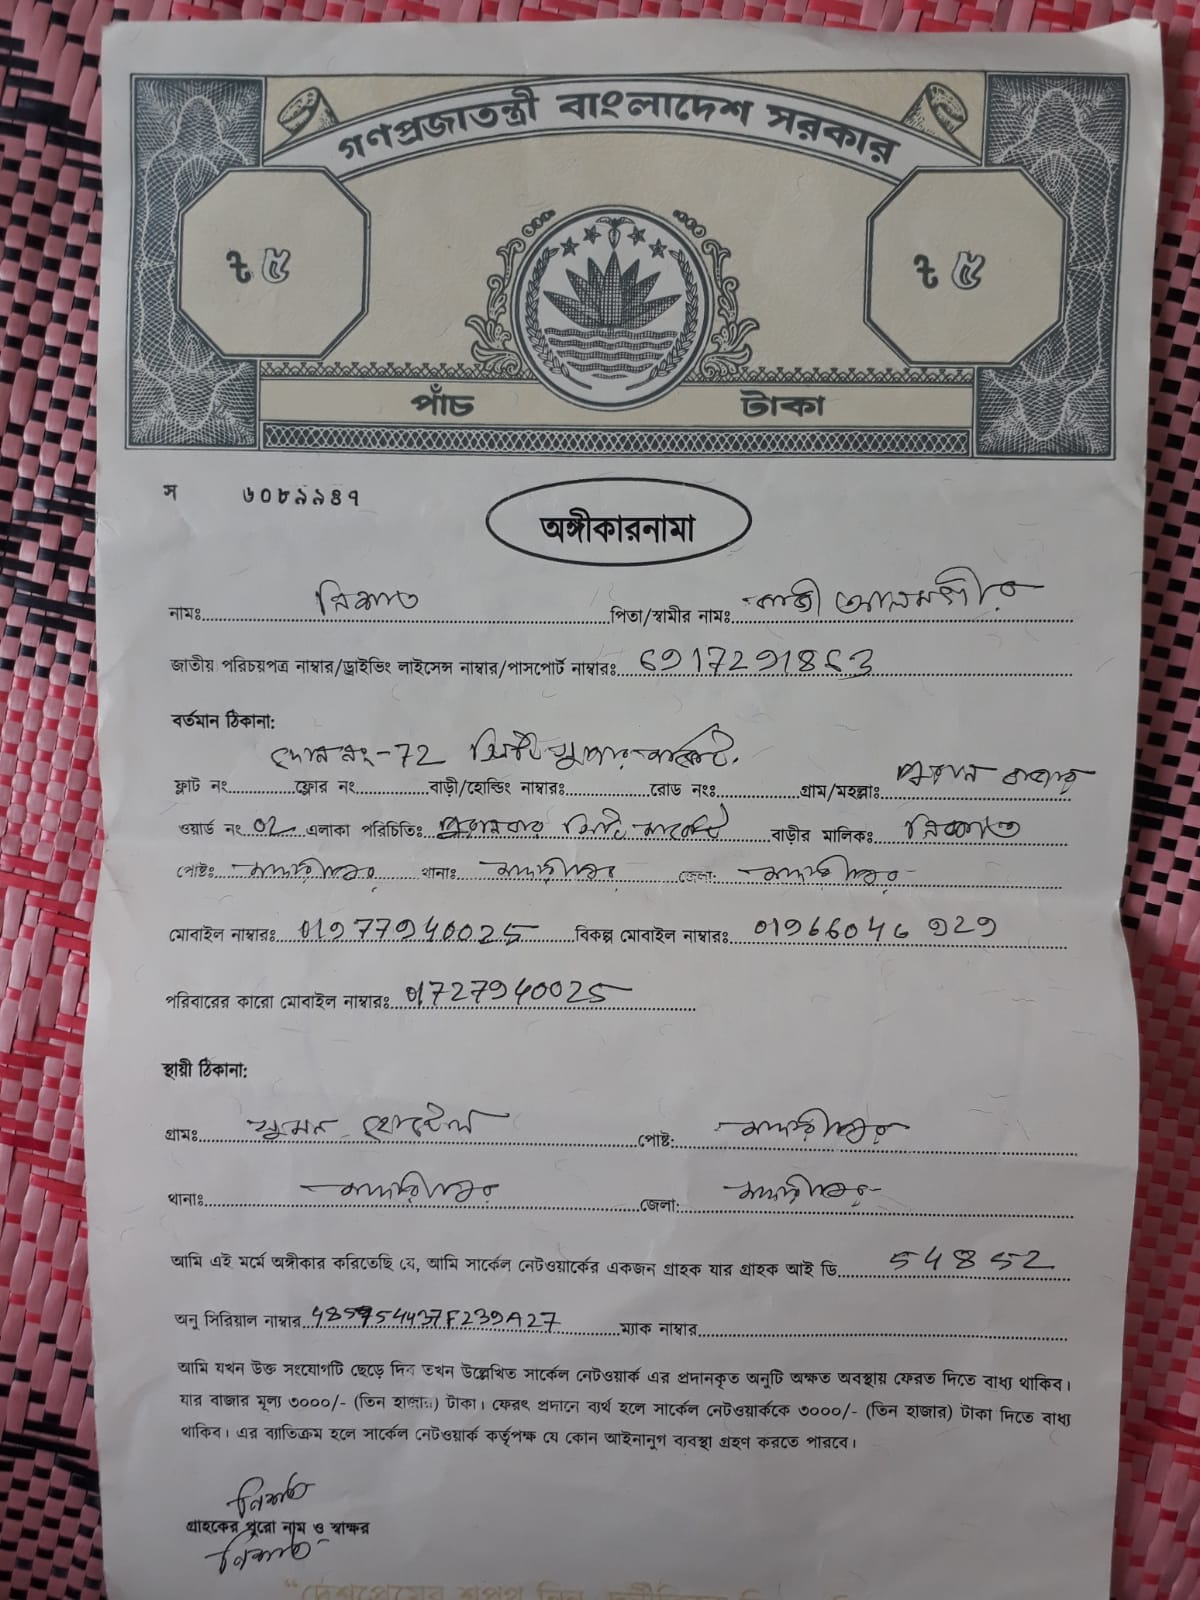 গণপ্রজাতন্ত্রী বাংলাদেশ সরকার
৳ ৫ ৳ ৫
পাঁচ টাকা
স ৬০৮৯৯৪৭
অঙ্গীকারনামা
নামঃ নিশাত পিতা/স্বামীর নামঃ কাজী আলমগীর
জাতীয় পরিচয়পত্র নাম্বার/ড্রাইভিং লাইসেন্স নাম্বার/পাসপোর্ট নাম্বারঃ
বর্তমান ঠিকানা:
72 সুপার মার্কেট
ফ্লাট নং ফ্লোর নং বাড়ী/হোল্ডিং নাম্বারঃ রোড নংঃ গ্রাম/মহল্লাঃ পুরান বাজার
ওয়ার্ড নং 02 এলাকা পরিচিতিঃ বাড়ীর মালিকঃ নিশাত
পোষ্টঃ মাদারীপুর থানাঃ মাদারীপুর জেলা: মাদারীপুর
মোবাইল নাম্বারঃ বিকল্প মোবাইল নাম্বারঃ
পরিবারের কারো মোবাইল নাম্বারঃ
স্থায়ী ঠিকানা:
গ্রামঃ সুমন হোটেল পোষ্ট: মাদারীপুর
থানাঃ মাদারীপুর জেলা: মাদারীপুর
আমি এই মর্মে অঙ্গীকার করিতেছি যে, আমি সার্কেল নেটওয়ার্কের একজন গ্রাহক যার গ্রাহক আই ডি 54852
অনু সিরিয়াল নাম্বার ম্যাক নাম্বার
আমি যখন উক্ত সংযোগটি ছেড়ে দিব তখন উল্লেখিত সার্কেল নেটওয়ার্ক এর প্রদানকৃত অনুটি অক্ষত অবস্থায় ফেরত দিতে বাধ্য থাকিব।
যার বাজার মূল্য ৩০০০/- (তিন হাজার) টাকা। ফেরৎ প্রদানে ব্যর্থ হলে সার্কেল নেটওয়ার্ককে ৩০০০/- (তিন হাজার) টাকা দিতে বাধ্য
থাকিব। এর ব্যাতিক্রম হলে সার্কেল নেটওয়ার্ক কর্তৃপক্ষ যে কোন আইনানুগ ব্যবস্থা গ্রহণ করতে পারবে।
নিশাত
গ্রাহকের পুরো নাম ও স্বাক্ষর
নিশাত